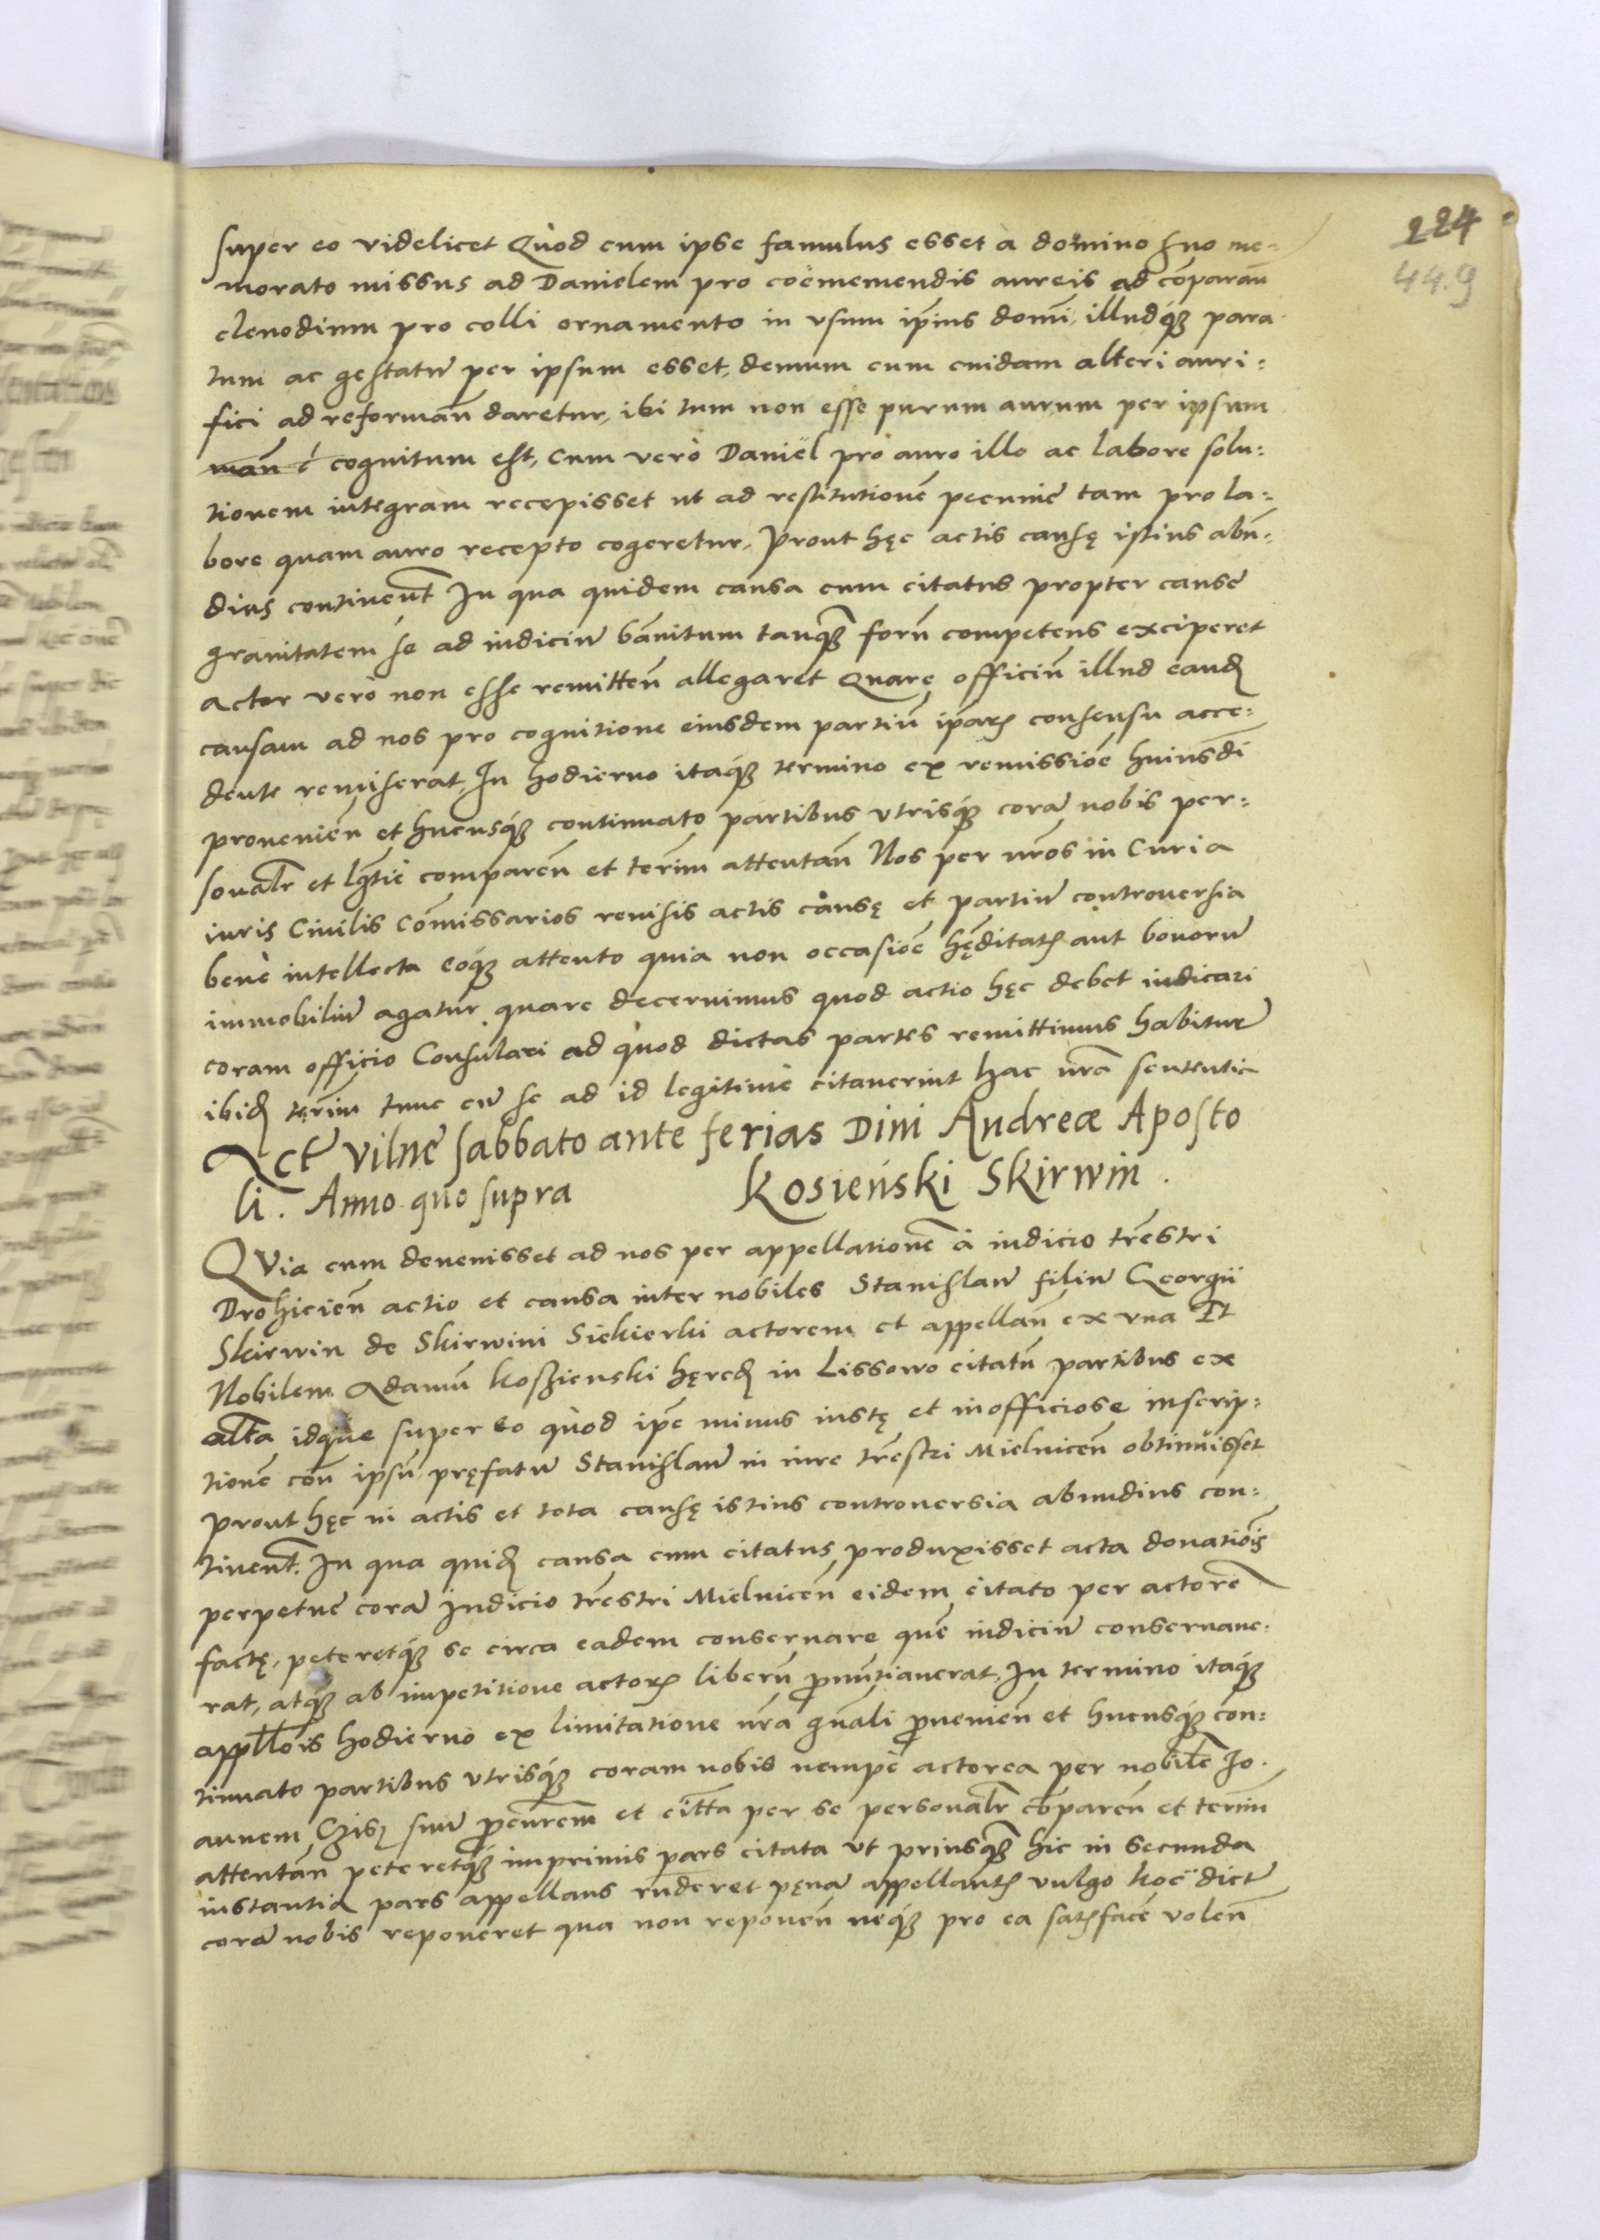 224
44.9
super eo videlicet Quod cum ipse famulus esset à domino suo me-
morato missus ad Danielem pro coëmemendis aureis ad cõparan̄
clenodium pro colli ornamento in vsum ip̃ius domĩ, illudq́ꝫ para
tum ac gestatũ per ipsum esset, demum cum cuidam alteri auri-
fici ad reformañ daretur, ibi tum non esse purum aurum per ipsum
cognitum est, cum verò Daniël pro auro illo ac labore solu-
tionem integram recępisset ut ad restitutionẽ pecuniẽ tam pro la-
bore quam auro recepto cogeretur, Prout hęc actis causę istius abũ-
dius continent̃ In qua quidem causa cum citatus propter causẽ
grauitatem se ad iudiciũ bãnitum tanqꝫ forũ competens exciperet
actor verò non esse remitteñ allegaret Quarę officiũ illud eandẽ
causam ad nos pro cognitione eiusdem partiũ ip̃arꝫ consensu acce-
dente remiserat, In hodierno itaq́ꝫ termino ex remissiõe huiusdi
prouenień et hucusq́ꝫ continuato partibus vtrisq́ꝫ corã nobis per-
sonalr̃ et lg̃tie compareñ et ter̃im attentañ Nos per nr̃os in Curia
iuris Ciuilis Cõmissarios reuisis actis causę et partiũ controuersia
bene intellecta eoq́ꝫ attento quia non occasiõe hęditatꝫ aut bonorũ
immobiliũ agatur quare decernimus quod actio hęc debet iudicari
coram officio Consulari ad quod dictas partes remittimus habiturẽ
ibidẽ ter̃im tunc cũ se ad id legitimè citauerint hac nr̃a sententia
Act̃ Vilnẽ sabbato ante ferias Diui Andreæ Aposto
li. Anno quo supra
Kosieński Skirwin.
QVia cum deuenisset ad nos per appellationẽ à iudicio tr̃estri
Drohicieñ actio et causa inter nobiles Stanislaũ filiũ Georgii
Skirwin de Skirwini Siekierki actorem et appellañ ex vna Et
Nobilem Adamũ Koszienski hęredẽ in Lissowo citatũ partibus ex
altã idque super eo quòd ip̃e minus iustę et inofficiose inscrip-
tionẽ coñ ipsũ pręfatũ Stanislaũ in iure tr̃estri Mielniceñ obtinuisset
Prout hęc in actis et tota causę istius controuersia abundius con-
tinent̃. In qua quidẽ causa cum citatus produxisset acta donatiõis
perpetuẽ corã Iudicio tr̃estri Mielniceñ eidem citato per actorẽ
factę, peteretq́ꝫ se circa eadem conseruare quẽ iudiciũ conseruaue-
rat, atq́ꝫ ab impetitione actorꝫ liberũ p̃nũtiauerat, In termino itaq́ꝫ
appll̃õis hodierno ex limitatione nr̃a gñali p̃uenień et hucusq́ꝫ con-
tinuato partibus vtrisq́ꝫ coram nobis nempè actorea per nobilẽ Jo-
annem suũ p̃curem̃ et citt̃a per se personalr̃ cõpareñ et ter̃im
attentań peteretq́ꝫ imprimis pars citata vt priusqꝫ̃ hic in secunda
instantia pars appellans r̃nderet pęnã appellantꝫ vulgo koc̈ dictã
corã nobis reponeret qua non reponeñ neq́ꝫ pro ea satꝫfacẽ voleñ